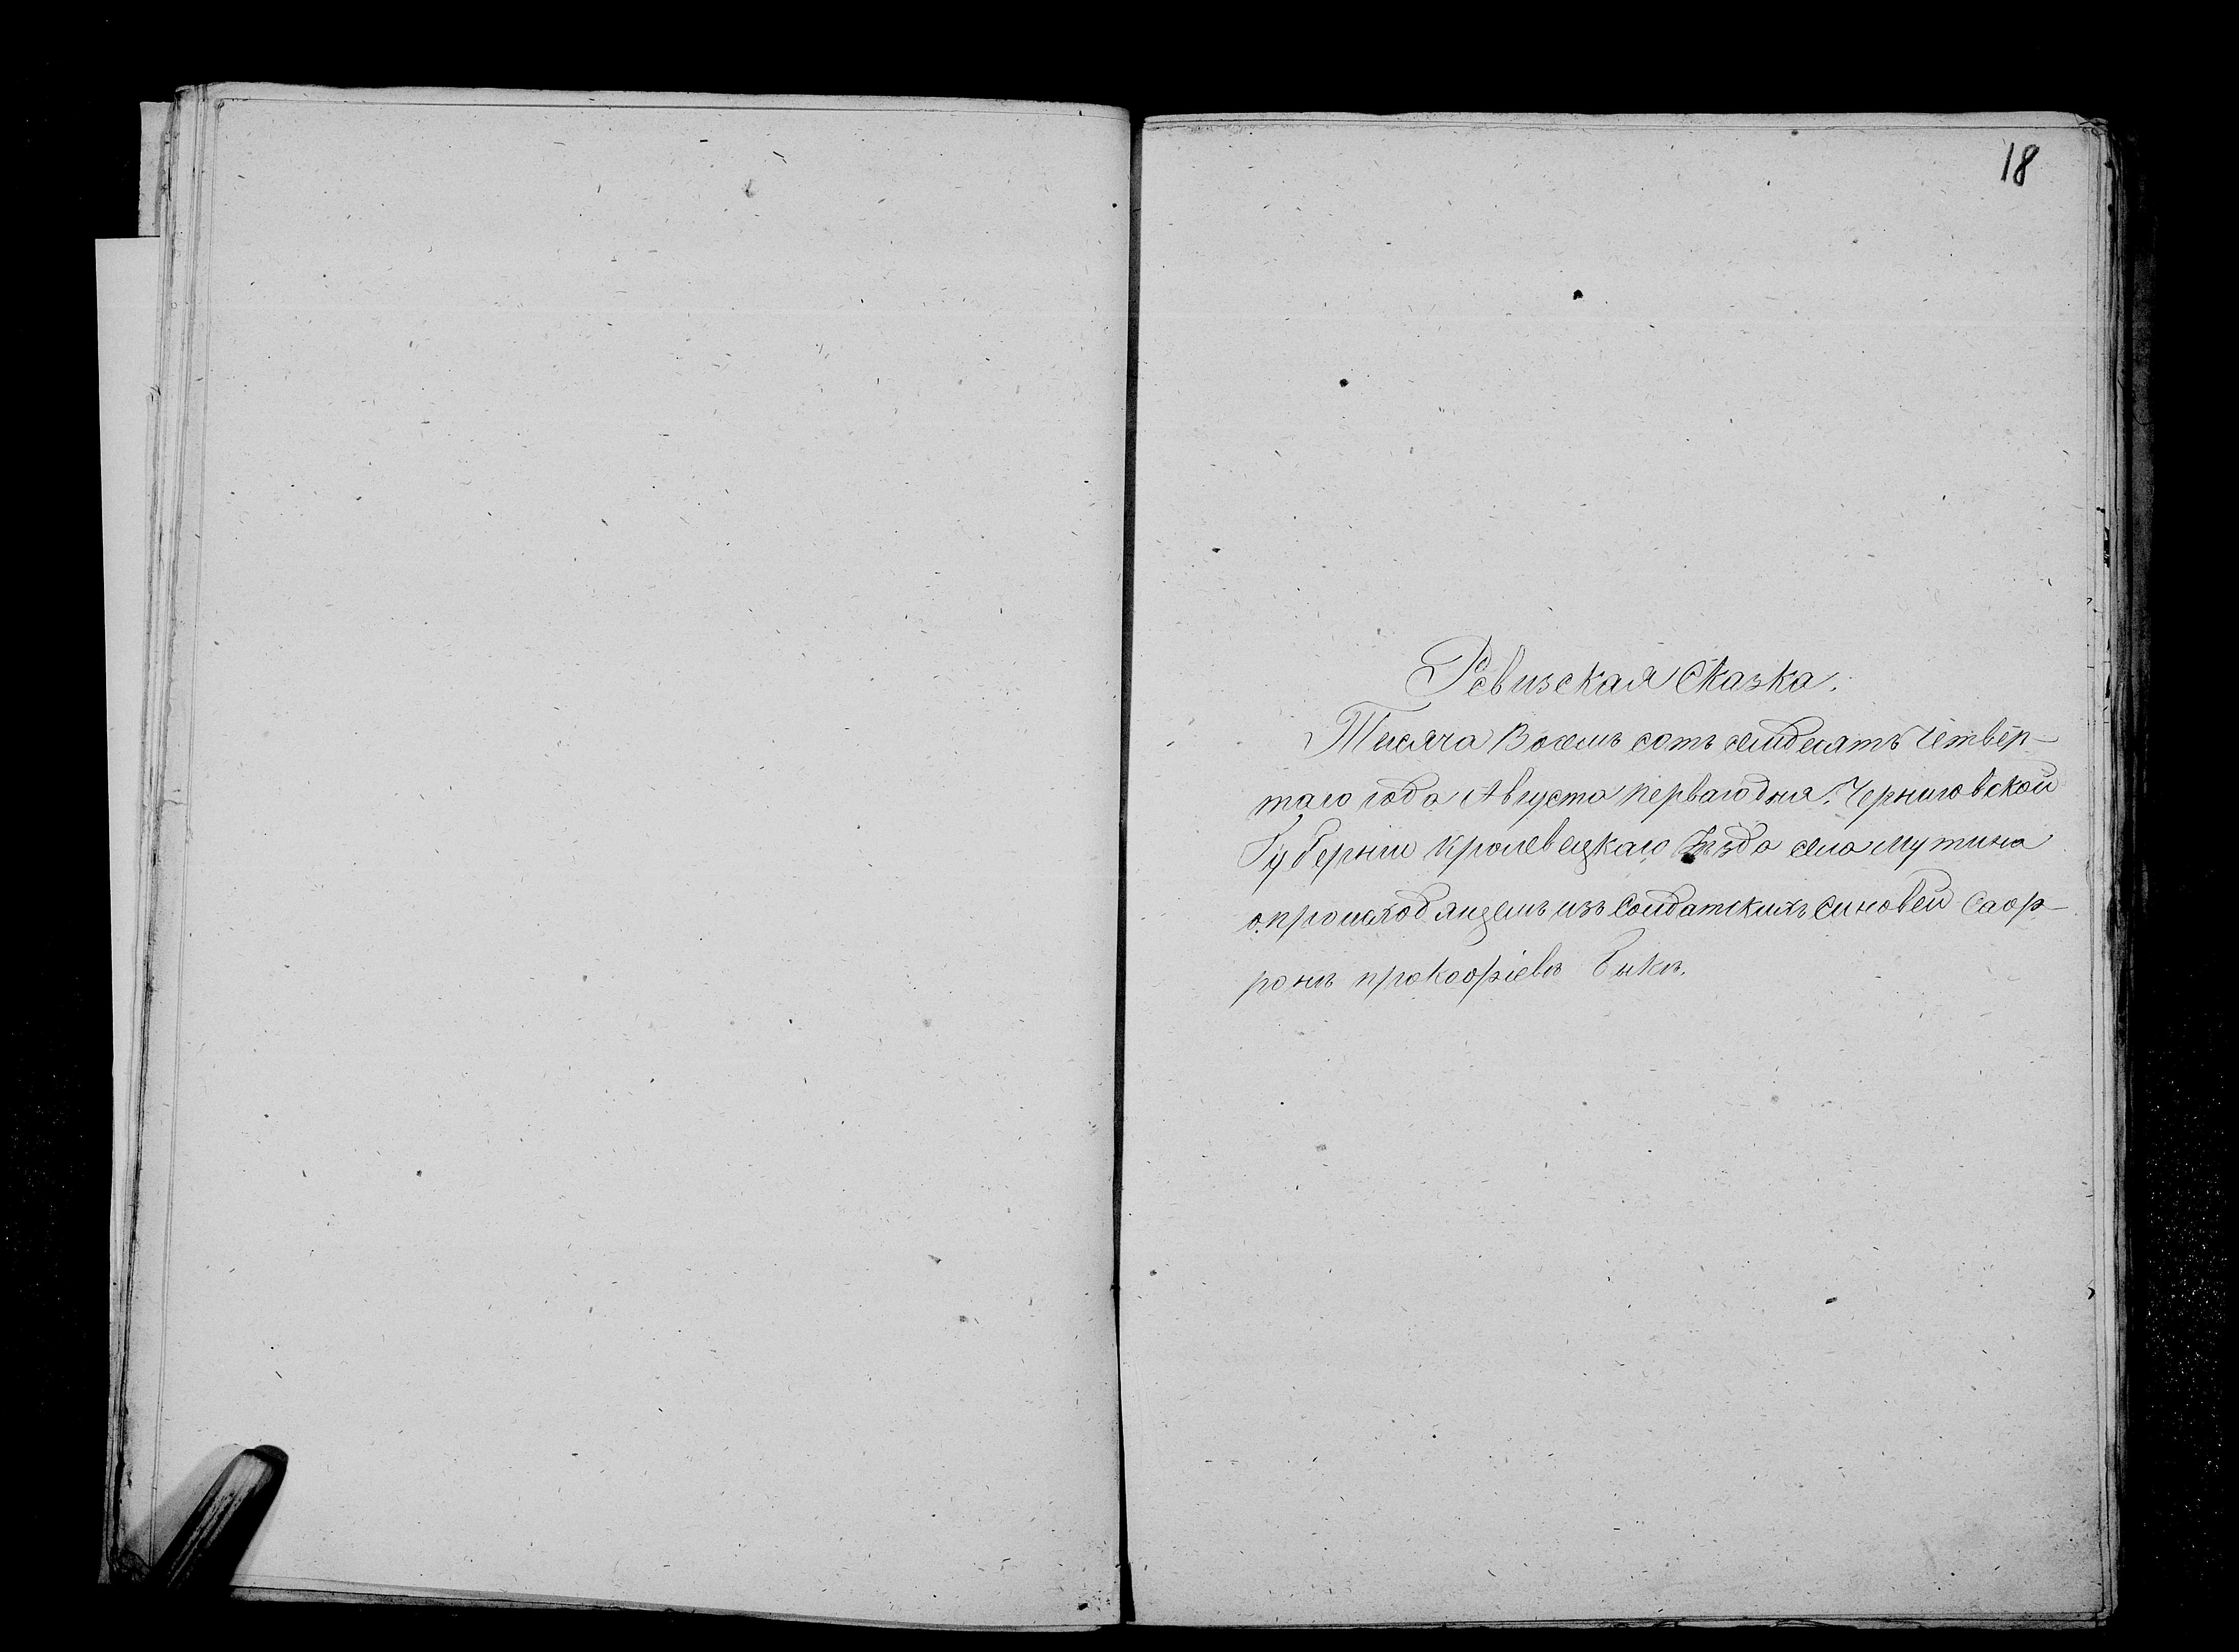 18
Ревизская Сказка.
Тисяча Восемь сотъ семдесятъ Четвер-
таго года Августа перваго дня. Черниговской
Губернии Кролевецкаго уѣзда села Мутина
о происходящемъ изъ Солдатскихъ синовей Саф-
ронъ прокофіевъ Быкъ.